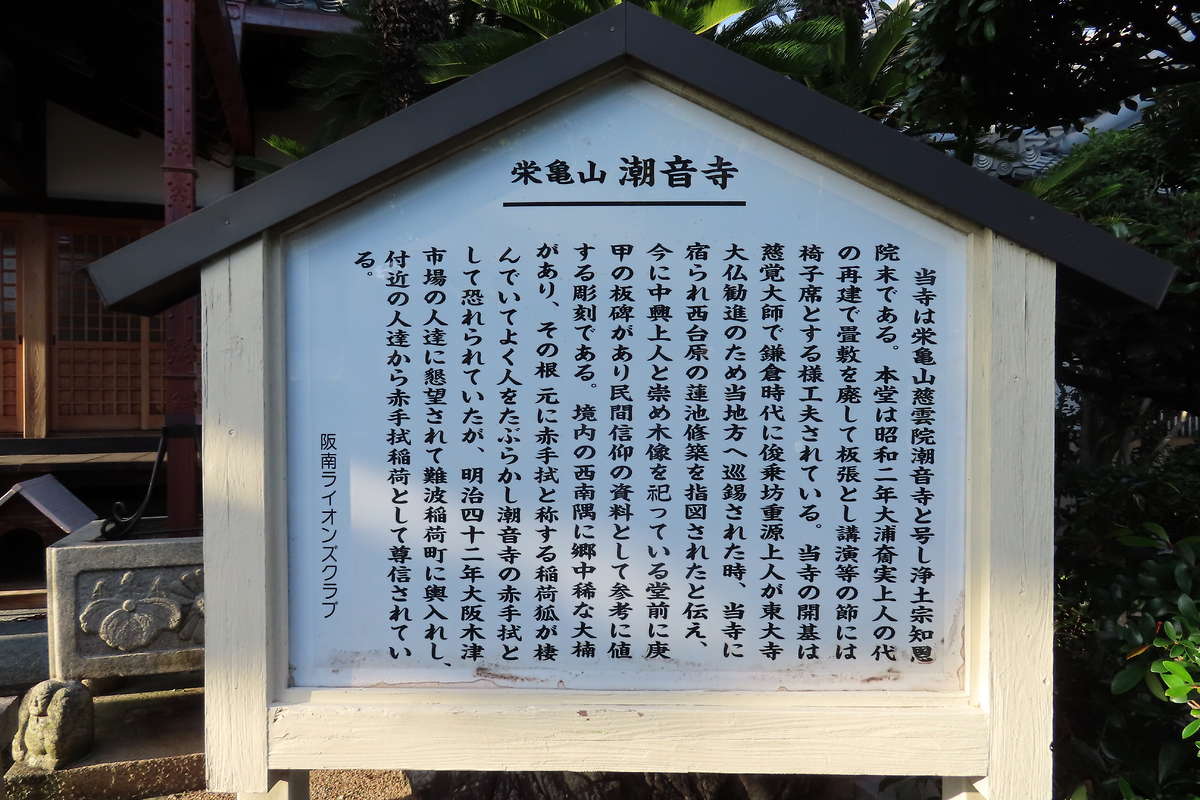 栄亀山 潮音寺
当寺は栄亀山慈雲院潮音寺と号し浄土宗知恩
院末である。本堂は昭和二年大浦奝実上人の代
の再建で畳敷を廃して板張とし講演等の節には
椅子席とする様工夫されている。当寺の開基は
慈覚大師で鎌倉時代に俊乗坊重源上人が東大寺
大仏勧進のため当地方へ巡錫された時、当寺に
宿られ西台原の蓮池修築を指図されたと伝え、
今に中興上人と崇め木像を祀っている堂前に庚
申の板碑があり民間信仰の資料として参考に値
する彫刻である。境内の西南隅に郷中稀な大楠
があり、その根元に赤手拭と称する稲荷狐が棲
んでいてよく人をたぶらかし潮音寺の赤手拭と
して恐れられていたが、明治四十二年大阪木津
市場の人達に懇望されて難波稲荷町に輿入れし、
付近の人達から赤手拭稲荷として尊信されてい
る。
阪南ライオンズクラブ